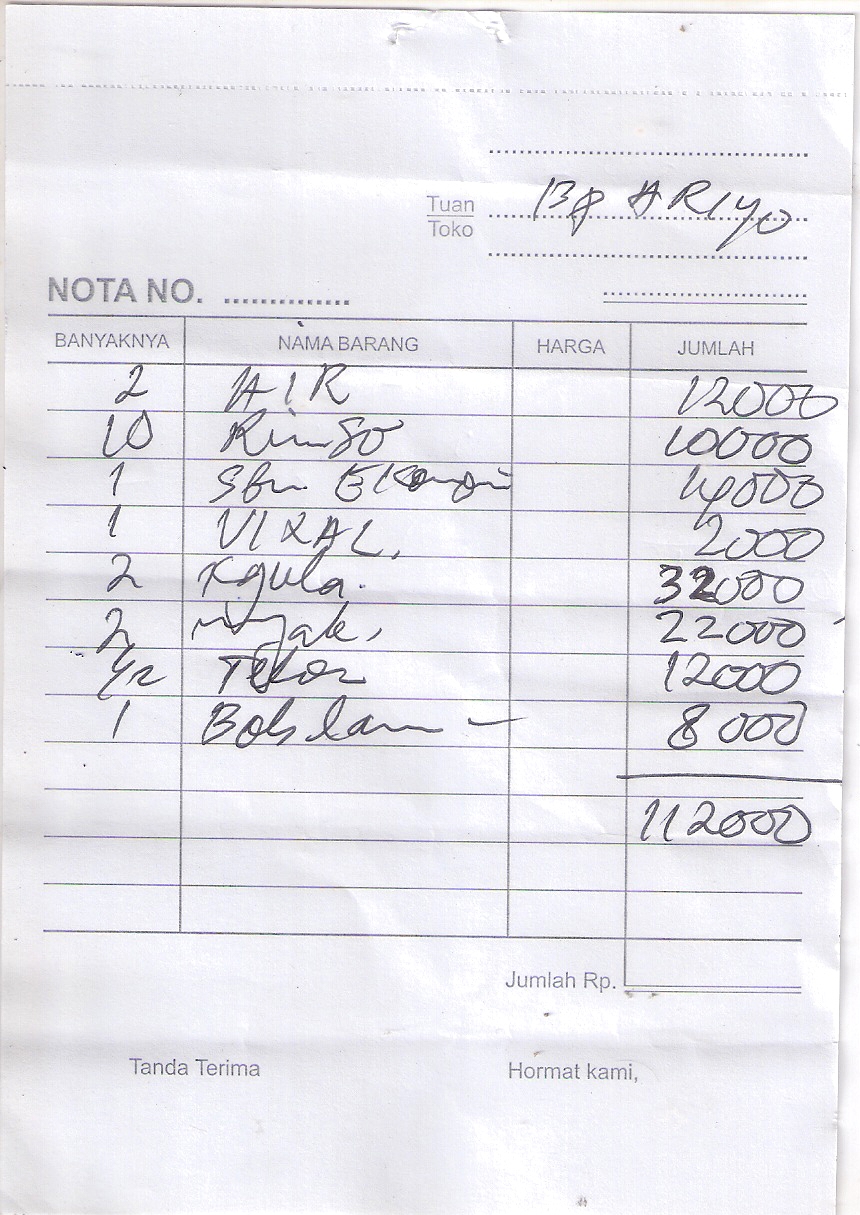 Tuan
Toko
Bp ARIYO
NOTA NO. ..............
BANYAKNYA NAMA BARANG HARGA JUMLAH
2 AIR 12000
10 Rinso 10000
1 Sbn Ekonomi 14000
1 VIXAL. 2000
2 Kgula. 32000
2 minyak, 22000
1/2 Telor 12000
1 Bol 8000
112000
Jumlah Rp.
Tanda Terima Hormat kami,